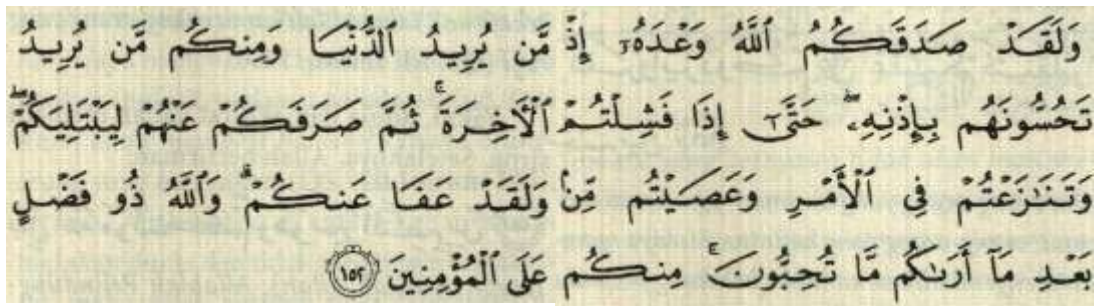 وَلَقَدْ صَدَقَكُمُ ٱللَّهُ وَعْدَهُۥٓ إِذْ
تَحُسُّونَهُم بِإِذْنِهِۦ ۖ حَتَّىٰٓ إِذَا فَشِلْتُمْ
وَتَنَـٰزَعْتُمْ فِى ٱلْأَمْرِ وَعَصَيْتُم مِّنۢ
بَعْدِ مَآ أَرَىٰكُم مَّا تُحِبُّونَ ۚ مِنكُم
مَّن يُرِيدُ ٱلدُّنْيَا وَمِنكُم مَّن يُرِيدُ
ٱلْـَٔاخِرَةَ ۚ ثُمَّ صَرَفَكُمْ عَنْهُمْ لِيَبْتَلِيَكُمْ ۖ
وَلَقَدْ عَفَا عَنكُمْ ۗ وَٱللَّهُ ذُو فَضْلٍ
عَلَى ٱلْمُؤْمِنِينَ ١٥٢